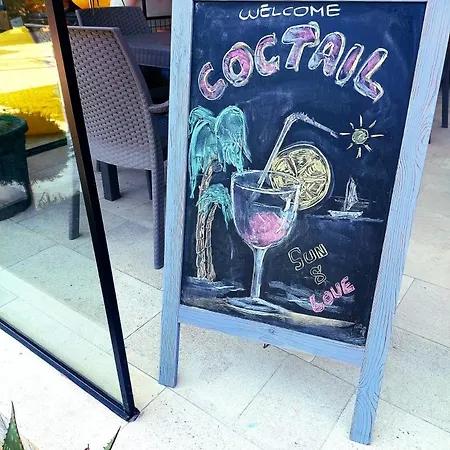 WELCOME
COCTAIL
SUN
&
LOVE